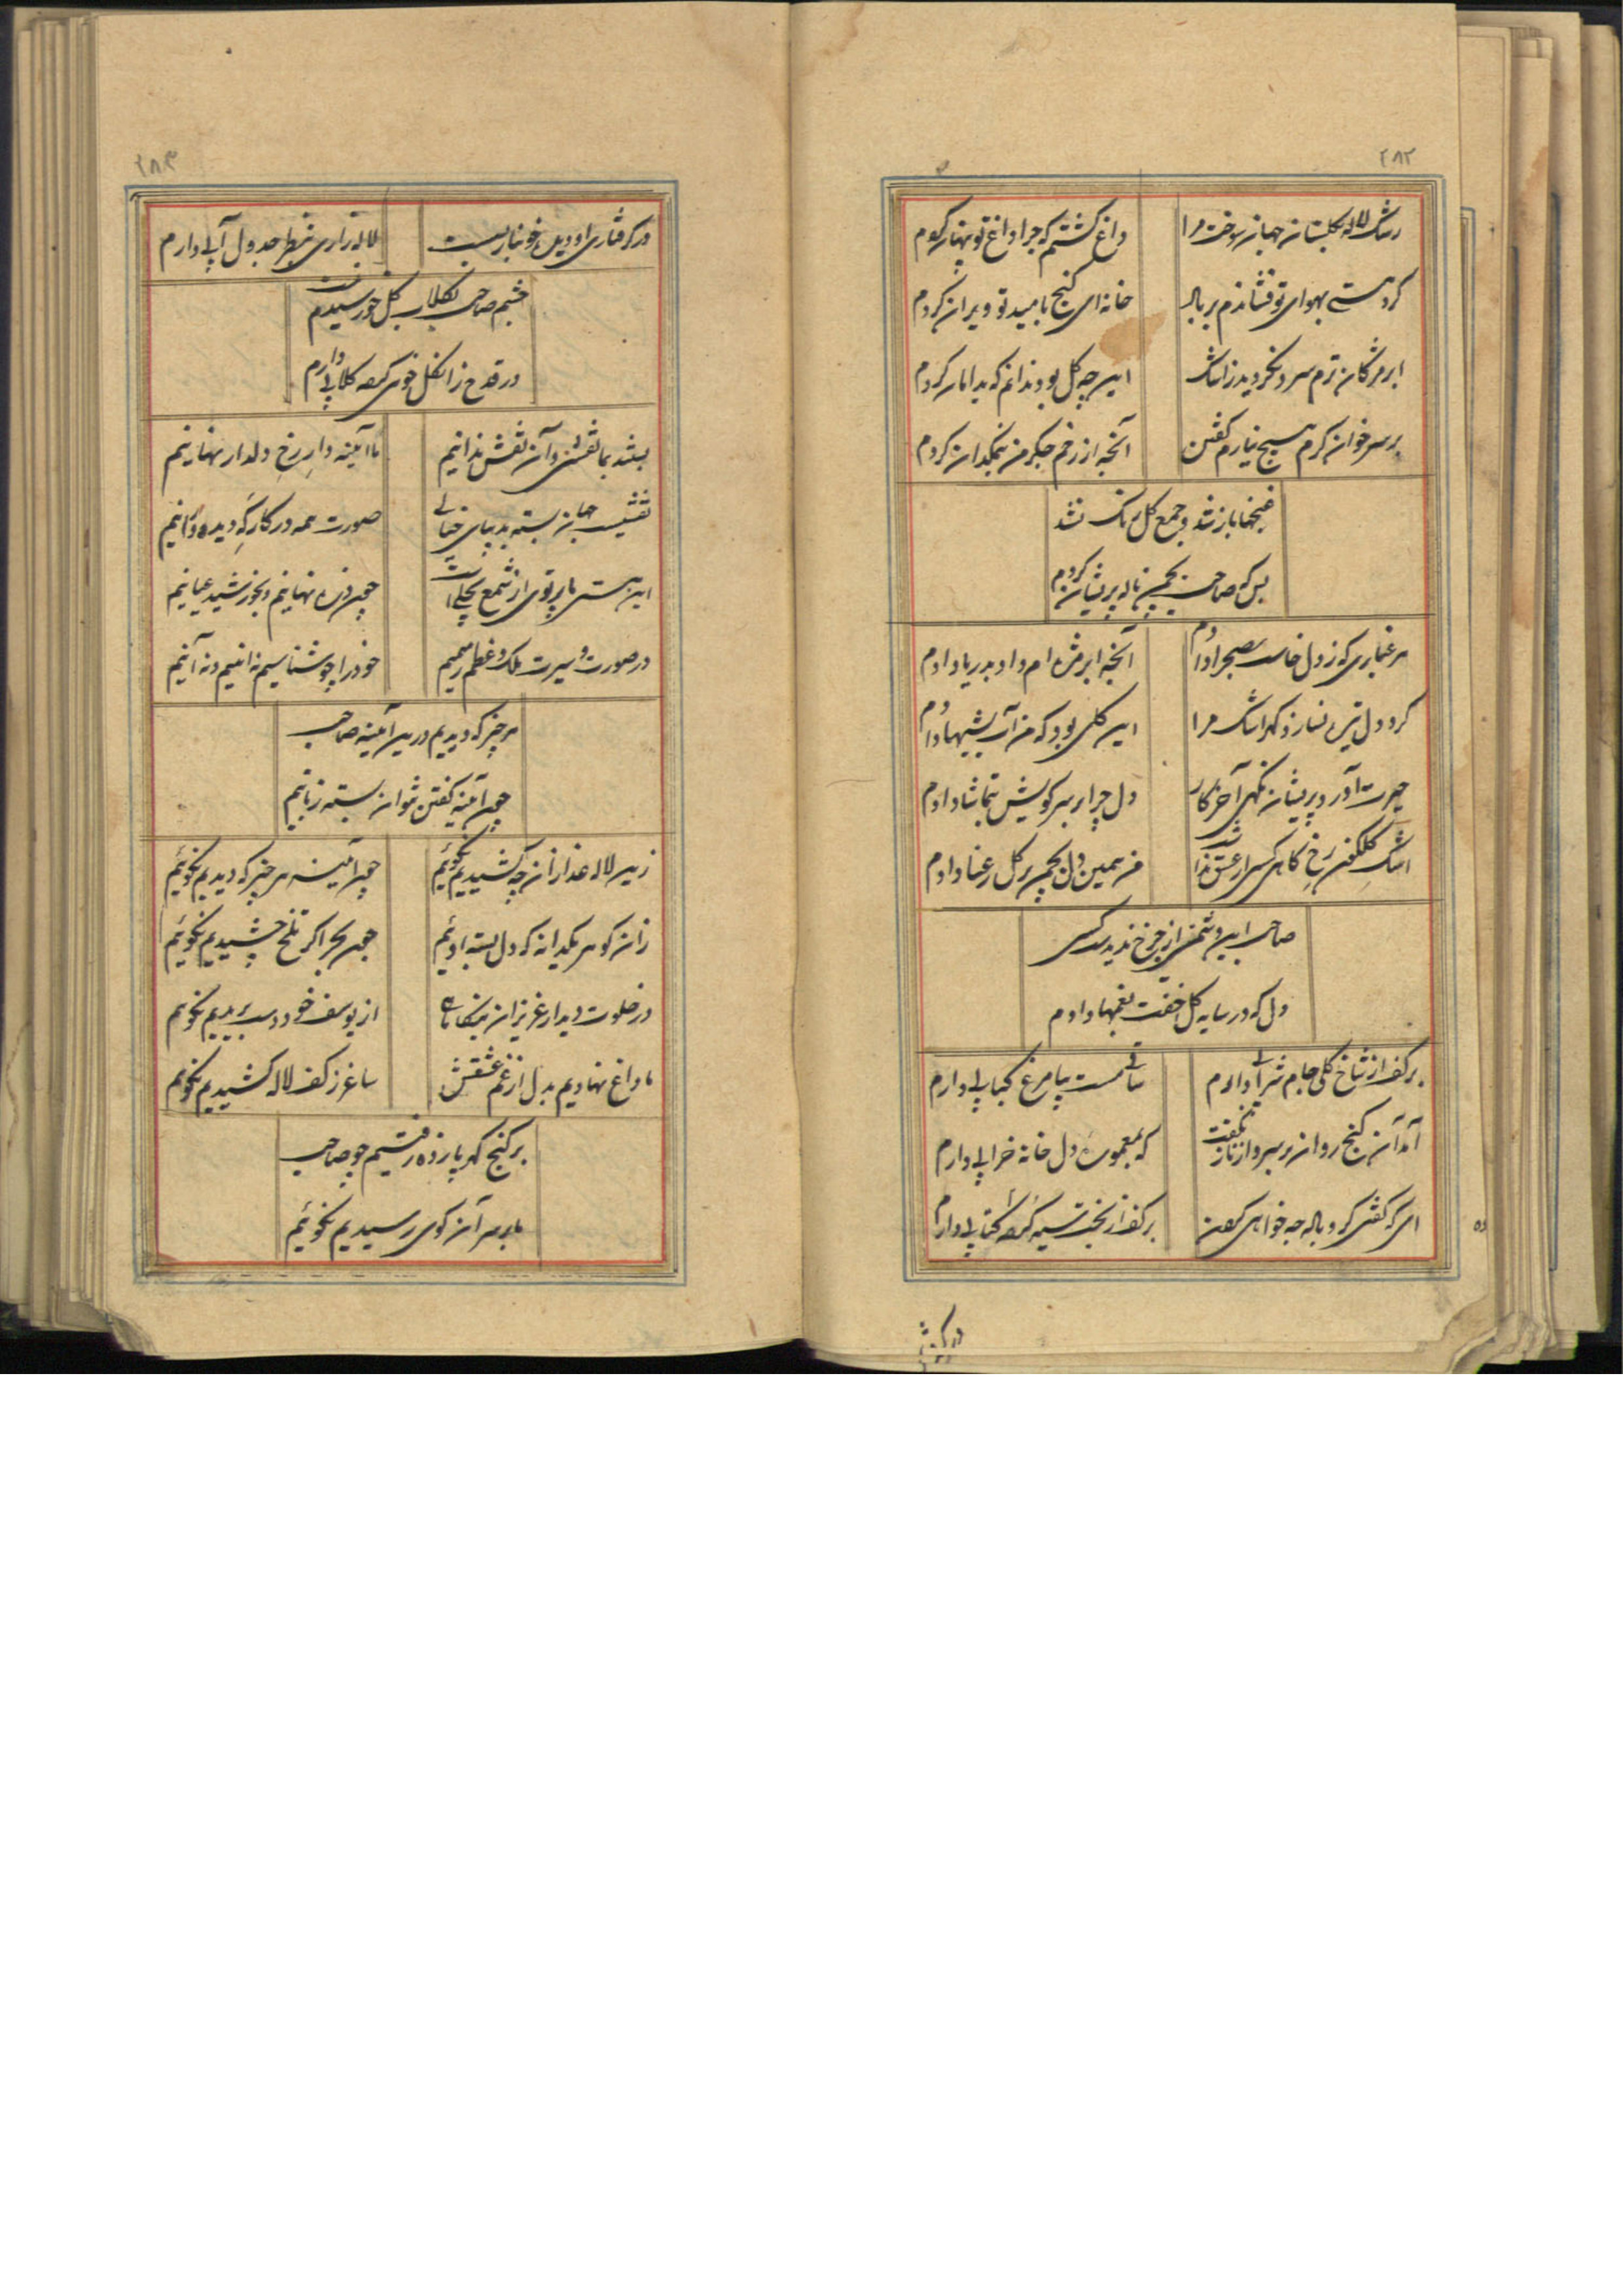 ۲۸۲
رشک لاله گلستان جهان سوخت مرا
داغ گشتم که چرا داغ تو پنهان کردم
گرد هستی بهوای تو فشاندم پر و بال
خانه ای گنج بامید تو ویران کردم
ابر مژگان ترم سرد نگردید ز اشک
این چه گل بود ندانم که بدامان کردم
بر سر خوان کرم هیچ نیارم گفتن
آنچه از زخم جگر من بنمکدان کردم
غنچها باز شد و جمع گل رنگ نشد
بس که صاحب بچمن ناله پریشان کردم
هر غباری که ز دل خاست بصحرا دادم
آنچه ابر مژه ام داد بدریا دادم
کرد دل تیره نسازد گهر اشک مرا
این گلی بود که من آب بشبها دادم
حیرت آورد پریشان نگهی آخر کار
دل چرا بر سر کویش بتماشا دادم
اشک گلگون رخ کاهی کسی از عشق نداد
من همین دل بچمن بر گل رعنا دادم
صاحب این دشمنی از چرخ ندیدست کسی
دل که در سایه گل خفت بغمها دادم
بر کف از شاخ گلی جام شرابی دارم
ساقی مست پیا مرغ کبابی دارم
آمد آن گنج روان بر سر و از ناز نگفت
که بمعموره دل خانه خرابی دارم
ای که گفتی گرو باله چه خواهی گفتن
بر کف از بخت سیه گفته کتابی دارم
در گرفتاری
۲۸۳
در گرفتاری او دیده خونبار بسیست
لاله زاری بنظر جدول آبی دارم
چشم صاحب بگلاب گل خورشیدم نیست
در قدح زان گل خوی کرده گلابی دارم
بیند بما نقشی و آن نقش ندانیم
ما آینه دار رخ دلدار نهانیم
نقشیست جهان بسته بدیبای خیالی
صورت همه در کارگه دیده دوانیم
این هستی ما پرتوی از شمع تجلیست
چون ذره نهانیم و بخورشید عیانیم
در صورت و سیرت ملک و عظم رمیم
خود را چو شناسیم نه اینیم و نه آنیم
هر چیز که دیدیم درین آینه صاحب
چون آینه گفتن نتوان بسته زبانیم
زین لاله عذاران چه کشیدیم نگوئیم
چون آینه هر چیز که دیدیم نگوئیم
زان گوهر یکدانه که دل بسته اوئیم
چون بحر اگر تلخ چشیدیم نگوئیم
در خلوت دیدار عزیزان بنگاهی
از یوسف خود دست بریدیم نگوئیم
ما داغ نهادیم بدل از غم عشقش
ساغر ز کف لاله کشیدیم نگوئیم
بر گنج گهر پا زده رفتیم چو صاحب
ما بر سر آن کوی رسیدیم نگوئیم